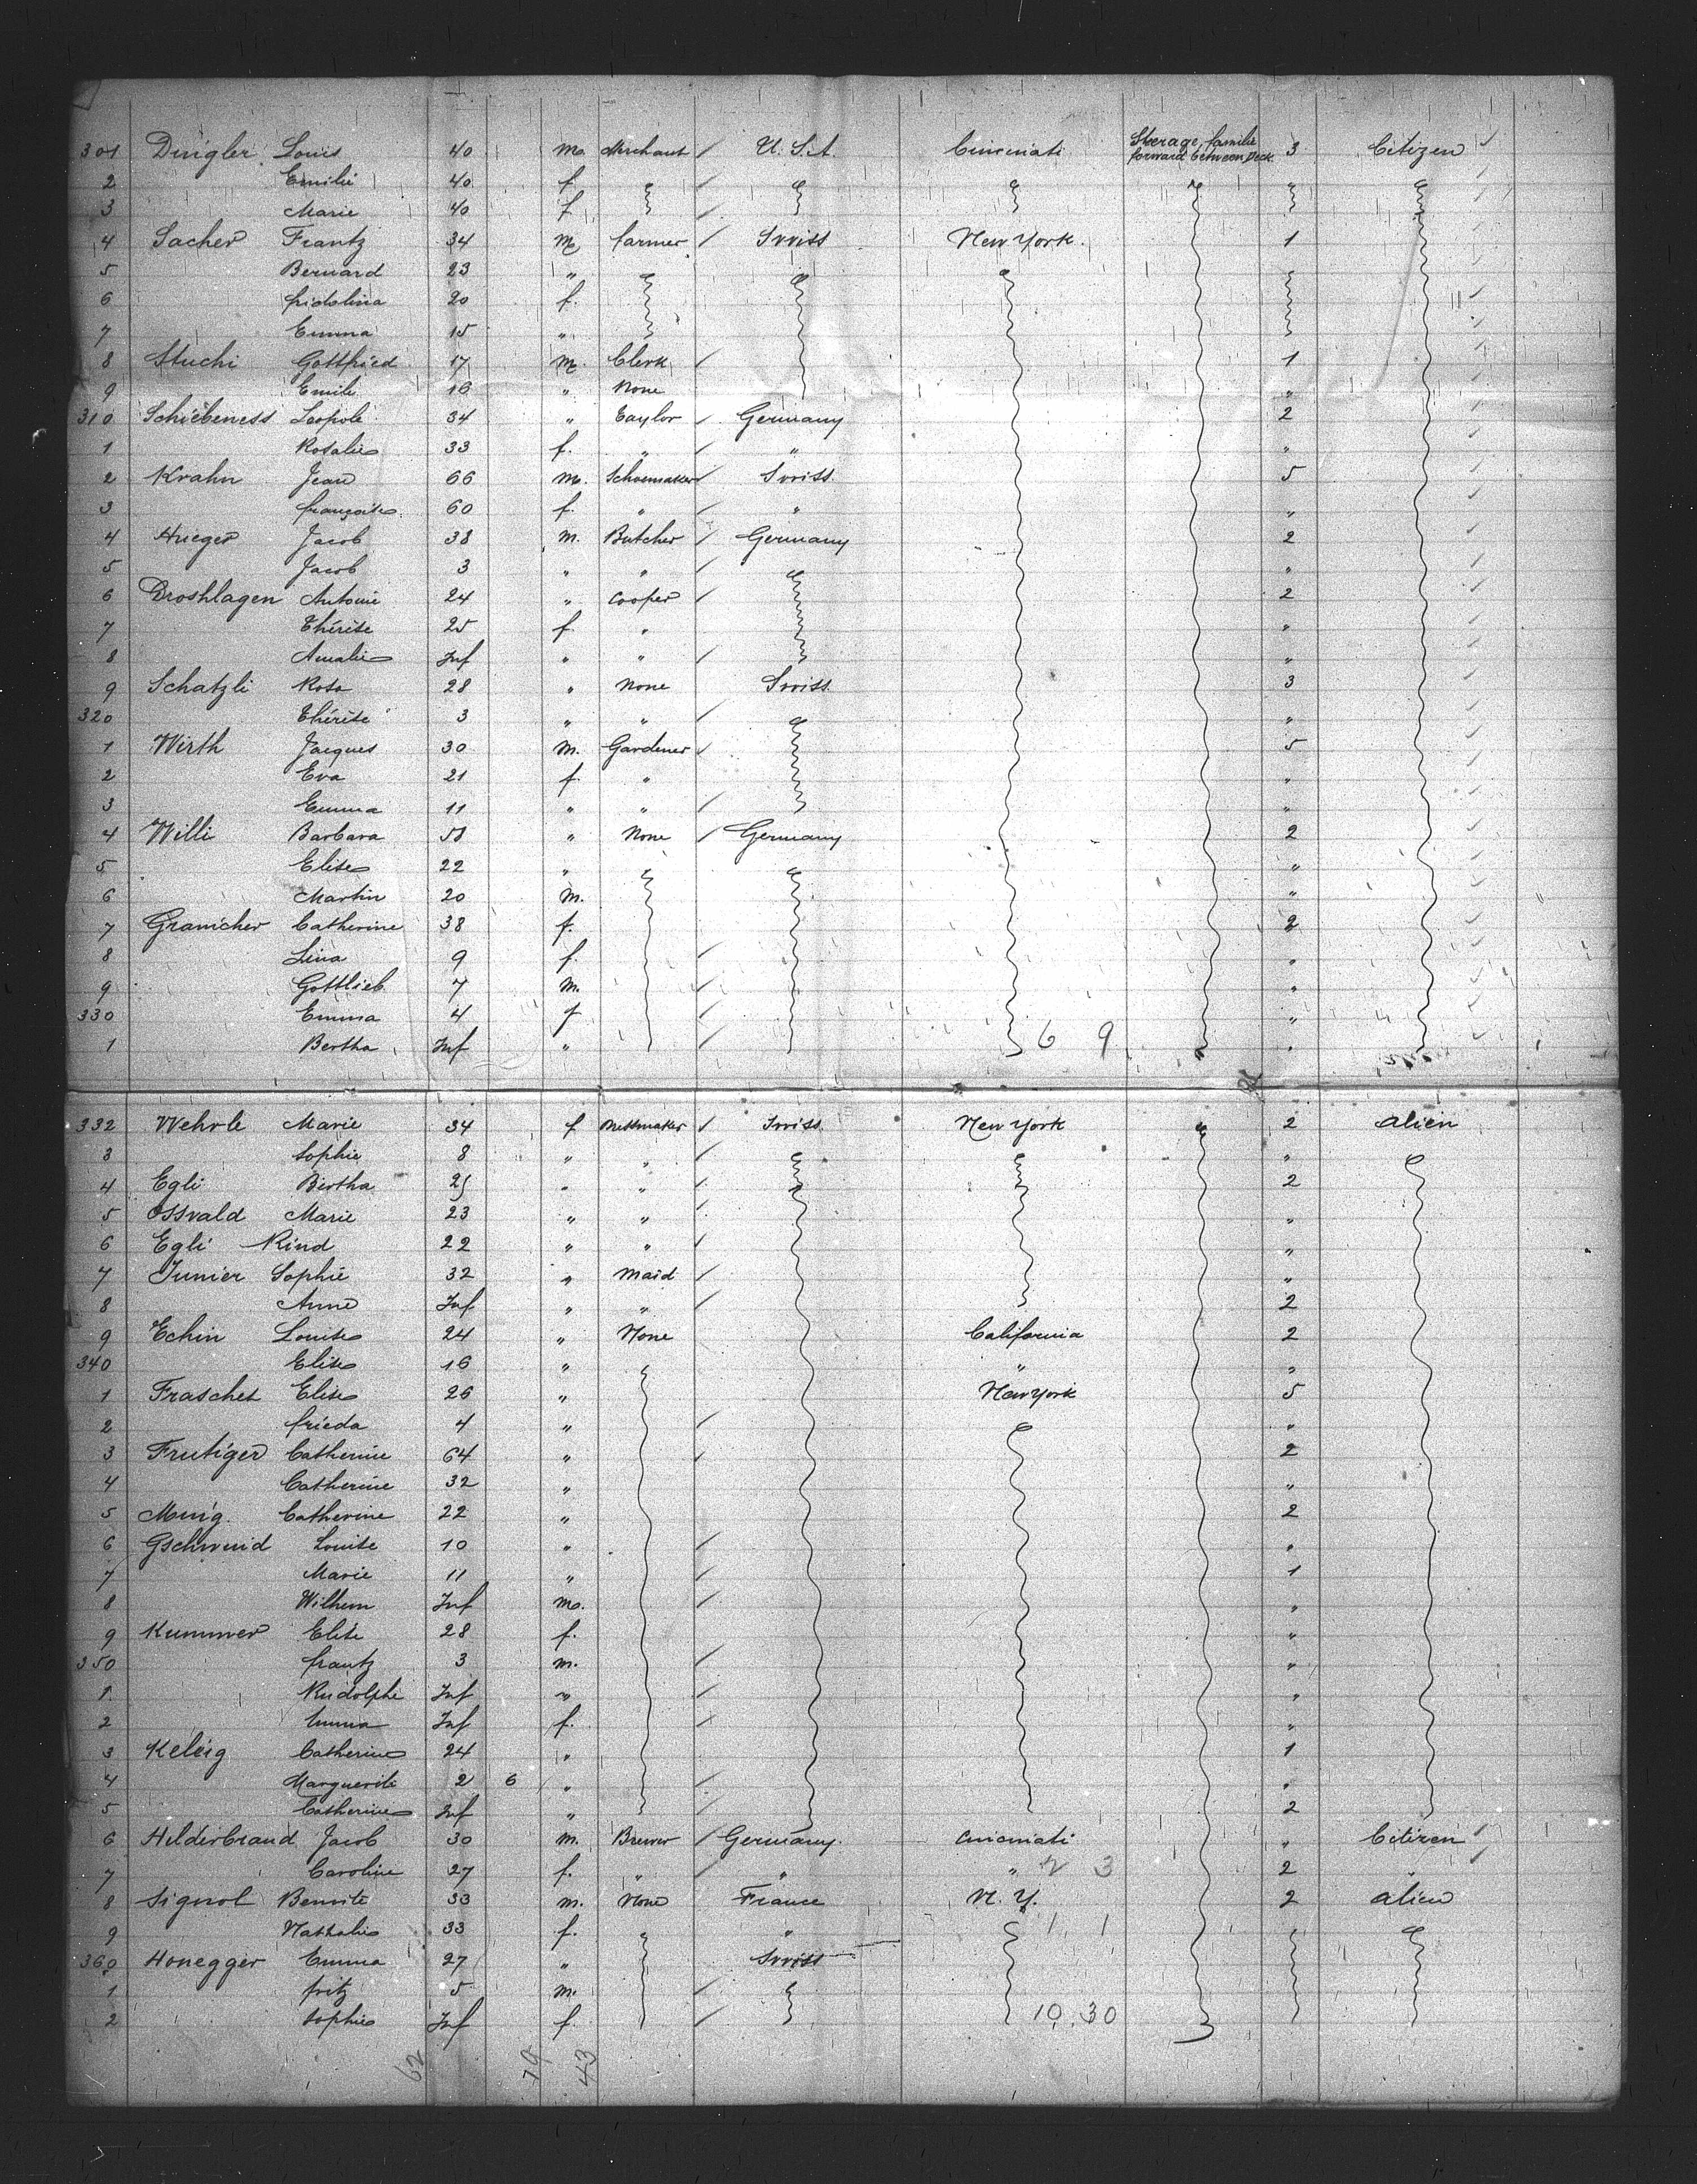 301 Dingler Louis 40 m. Merchant / U.S.A. Cincinati Steerage, familie forward between Deck 3 Citizen
2 Emilie 40 f.
3 Marie 40 f /
4 Sacher Frantz 34 m farmer / Swiss New York. 1
5 Bernard 23 "
6 fridolina 20 f.
7 Emma 15 "
8 Stuchi Gottfried 17 m. Clerk / 1
9 Emile 16 " None "
310 Schiebeness Leopole 34 " Taylor / Germany 2
1 Rosalie 33 f. " " "
2 Krahn Jean 66 m. Schoemaker / Swiss 5
3 françoise 60 f. " " "
4 Hueger Jacob 38 m. Butcher / Germany 2
5 Jacob 3 " " / "
6 Droshlagen Antoine 24 " Cooper / 2
7 Thérèse 25 f. " "
8 Amalie Inf " " / "
9 Schatzli Rosa 28 " None Swiss 3
320 Thérèse 3 " " / "
1 Wirth Jacques 30 m. Gardener / 5
2 Eva 21 f. " "
3 Emma 11 " " / "
4 Willi Barbara 58 " None / Germany 2
5 Elise 22 " "
6 Martin 20 m. "
7 Granicher Catherine 38 f. 2
8 Lina 9 f. / "
9 Gottlieb 7 m. / "
330 Emma 4 f / "
1 Bertha Inf " / 6 9 "
332 Wehrle Marie 34 f / Swiss New York 2 alien
3 Sophie 8 " " / "
4 Egli Bertha 25 " " / 2
5 Ossvald Marie 23 " " / "
6 Egli Rind 22 " " / "
7 Junier Sophie 32 " maid / "
8 Anne Inf " " / 2
9 Echin Louise 24 " None California 2
340 Elise 16 " " "
1 Fraschet Elise 26 " New York 5
2 frieda 4 " / "
3 Frutiger Catherine 64 " / 2
4 Catherine 32 " "
5 Meng. Catherine 22 " 2
6 Gschwind Louise 10 " / "
7 Marie 11 " / 1
8 Wilhem Inf m. / "
9 Kummer Elise 28 f. "
350 frantz 3 m. / "
1 Rudolphe Inf " / "
2 Emma Inf f. / "
3 Keleig Catherine 24 " 1
4 Marguerite 2 6 " / "
5 Catherine Inf " / 2
6 Hilderbrand Jacob 30 m. Brewer / Germany. Cincinati " Citizen
7 Caroline 27 f. " / " " 2 3 2 "
8 Signol Benoite 33 m. None France N. Y. 2 alien
9 Nathalie 33 f. " " 1 1
360 Honegger Emma 27 " Swiss
1 fritz 5 m. /
2 Sophie Inf f. / 10 30
62 19 43